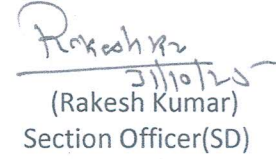 Rakesh Kr
31/10/25
(Rakesh Kumar)
Section Officer(SD)